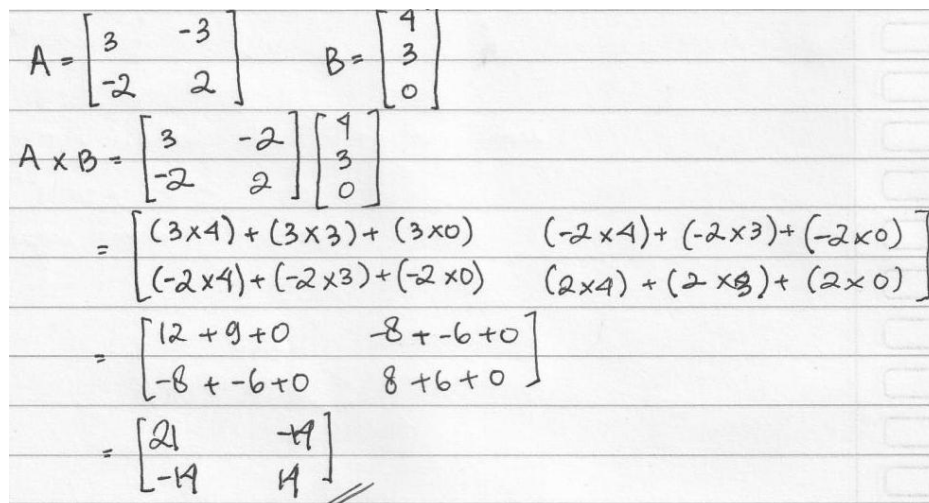 A = [3 -3 -2 2] B = [4 3 0]
A x B = [3 -2 -2 2] [4 3 0]
= [(3x4) + (3x3) + (3x0) (-2x4) + (-2x3) + (-2x0)
(-2x4) + (-2x3) + (-2x0) (2x4) + (2x3) + (2x0)]
= [12 + 9 + 0 -8 + -6 + 0
-8 + -6 + 0 8 + 6 + 0]
= [21 -14
-14 14]